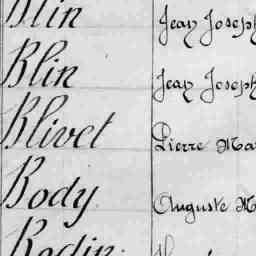 Blin Jean Joseph
Blin Jean Joseph
Blivet Pierre Ma
Body Auguste M
Bodin